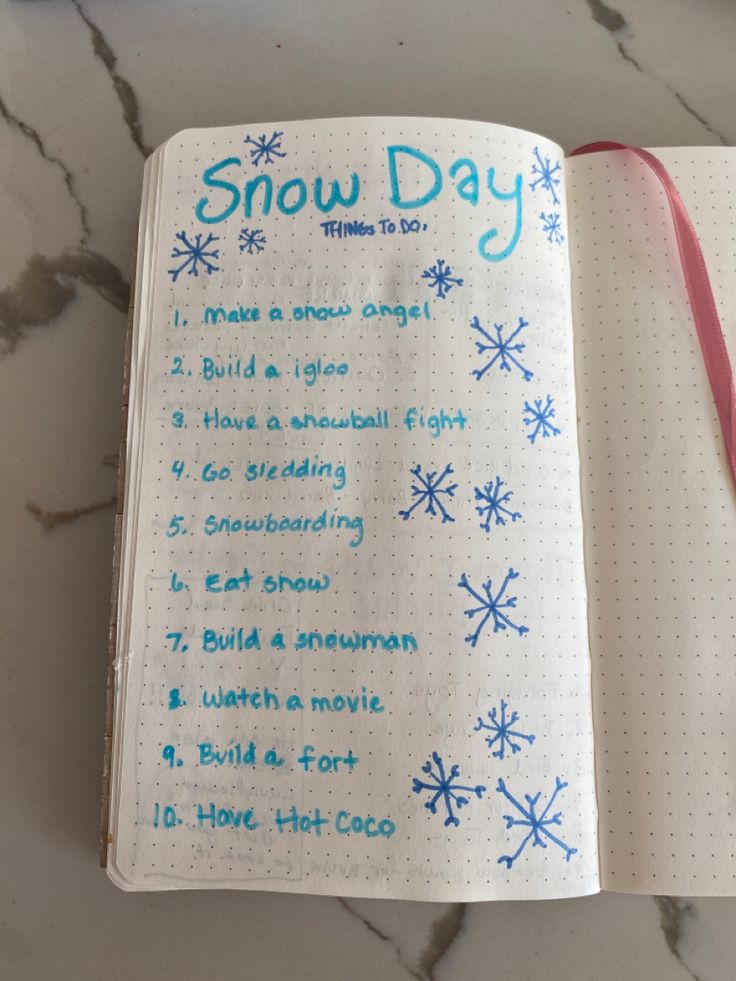 Snow Day
THINGS TO DO.
1. Make a snow angel
2. Build a igloo
3. Have a snowball fight
4. Go sledding
5. Snowboarding
6. Eat snow
7. Build a snowman
8. Watch a movie
9. Build a fort
10. Have Hot Coco